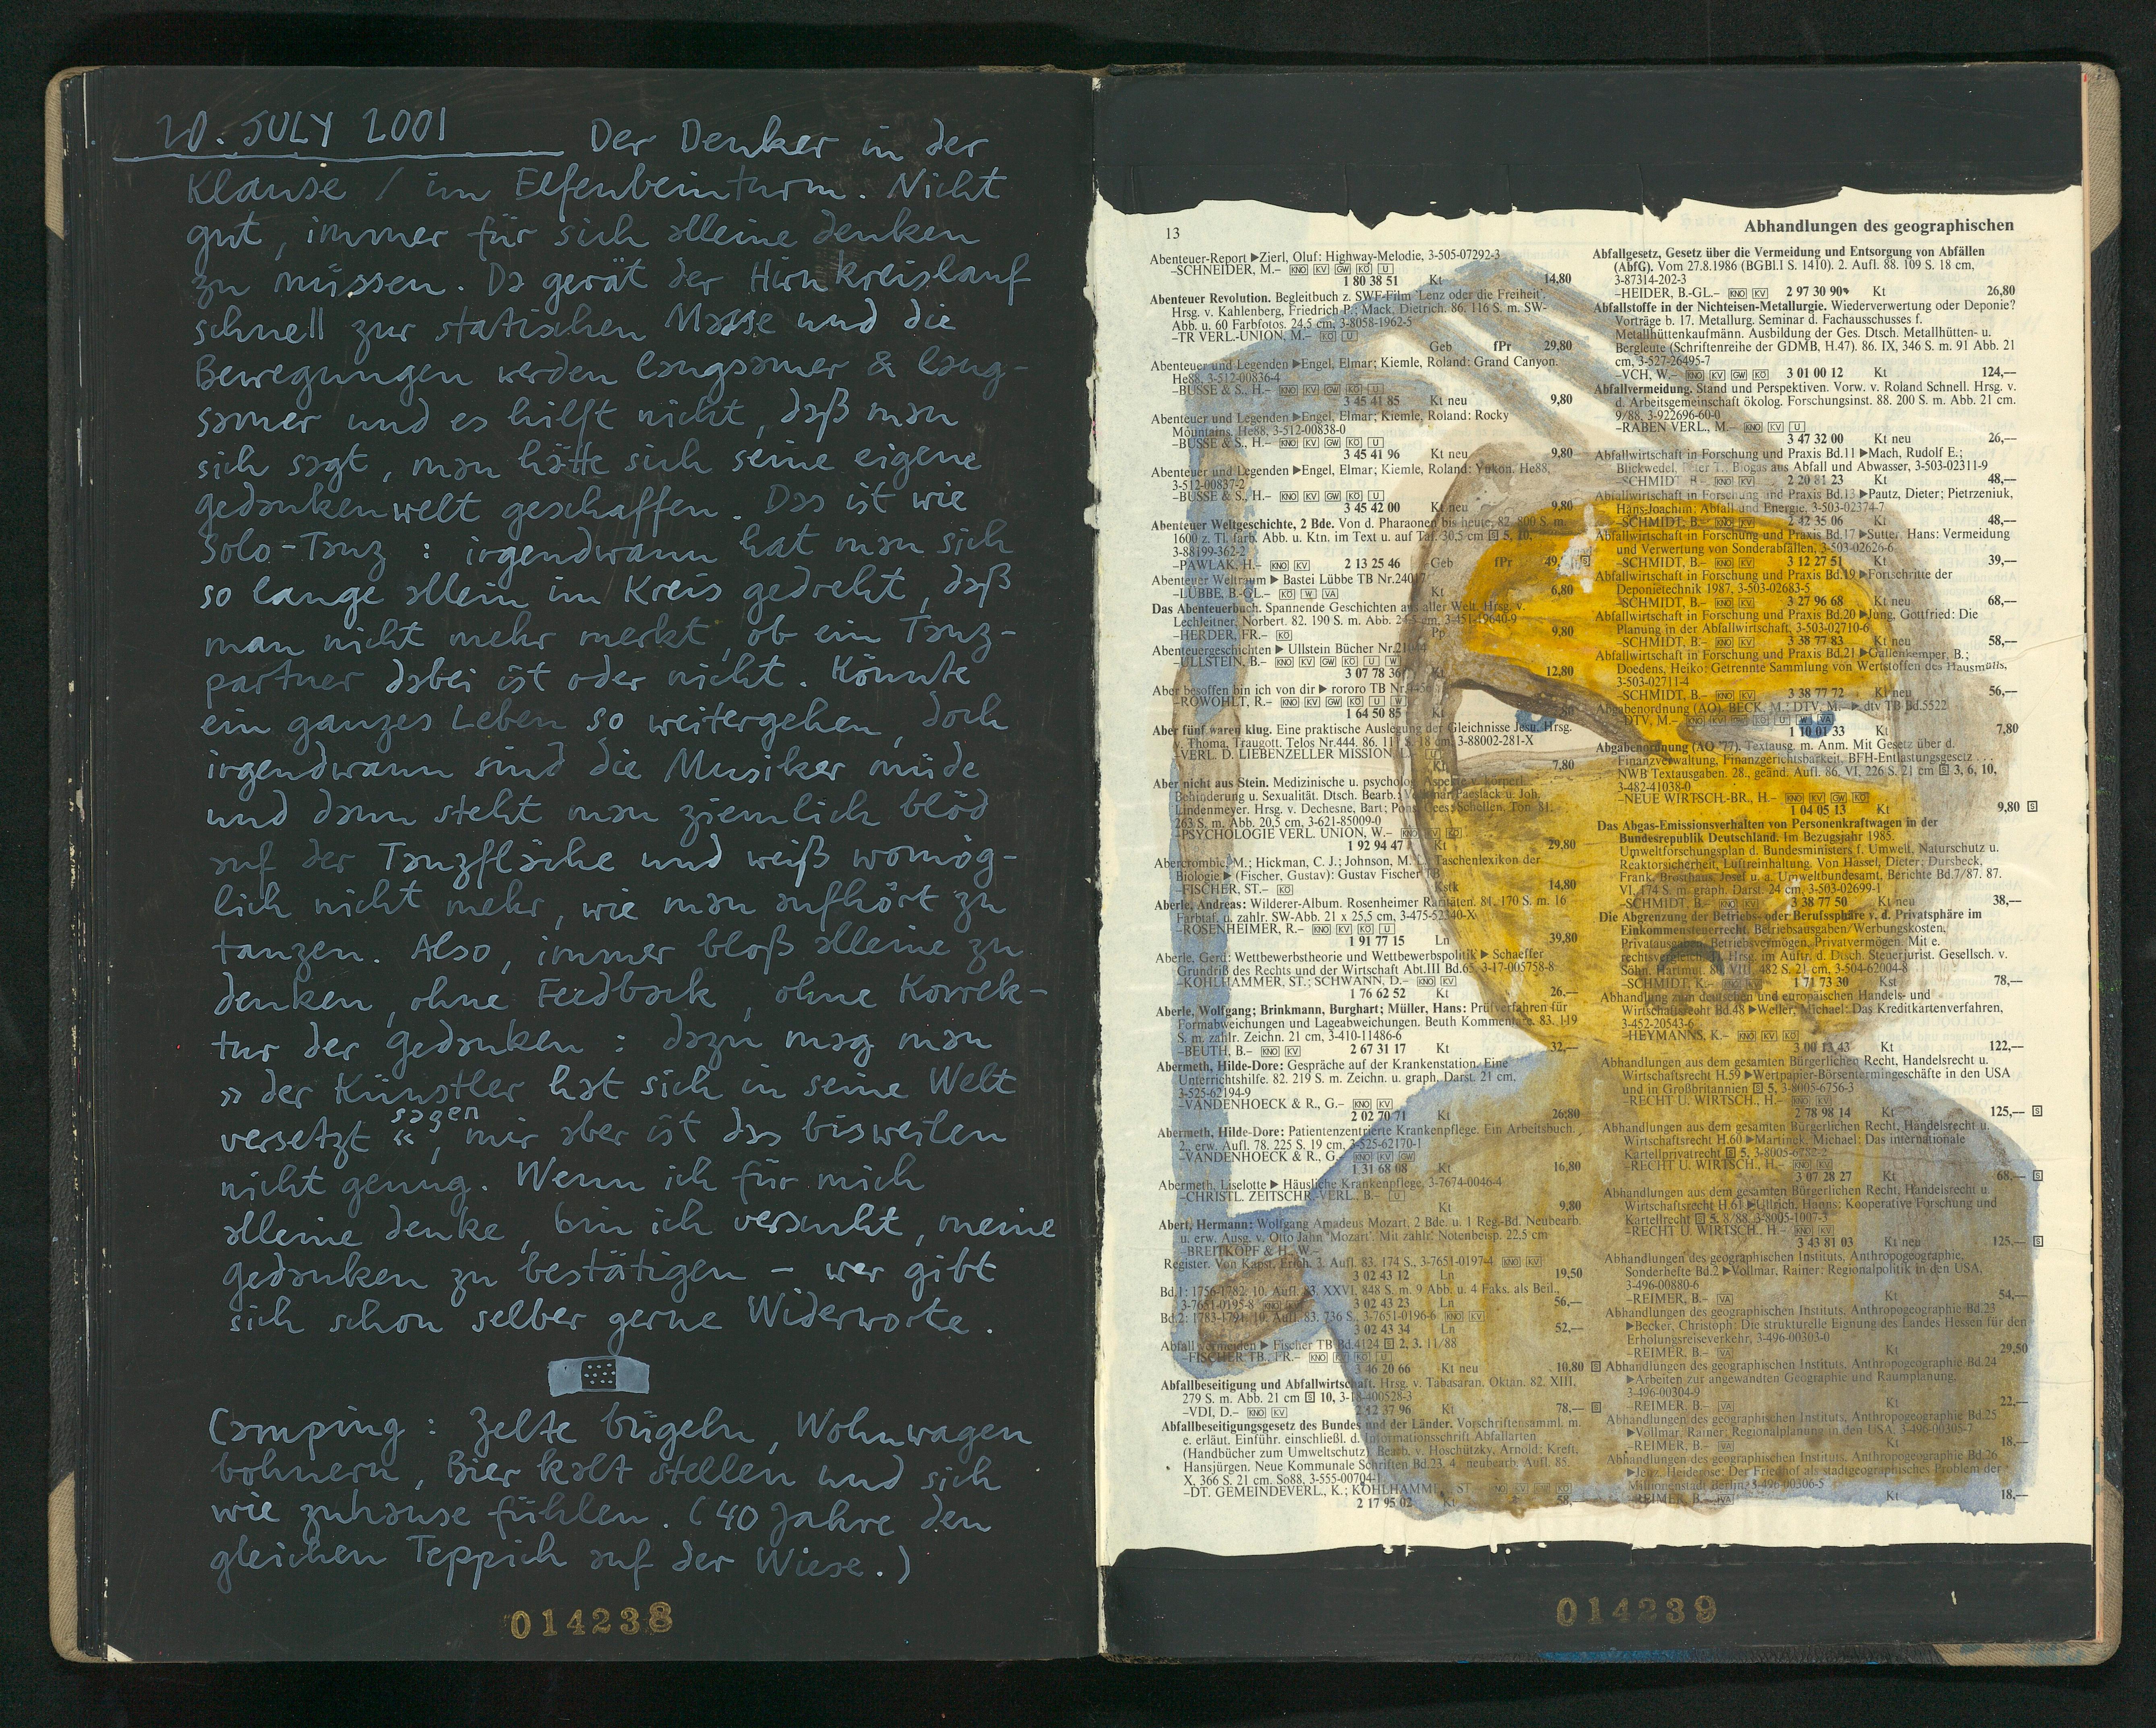 20. JULY 2001 Der Denker in der
Klause / im Elfenbeinturm. Nicht
gut, immer für sich alleine denken
zu müssen. Da gerät der Hirnkreislauf
schnell zur statischen Masse und die
Bewegungen werden langsamer & lang-
samer und es hilft nicht, daß man
sich sagt, man hätte sich seine eigene
gedankenwelt geschaffen. Das ist wie
Solo-Tanz : irgendwann hat man sich
so lange allein im Kreis gedreht, daß
man nicht mehr merkt, ob ein Tanz-
partner dabei ist oder nicht. Könnte
ein ganzes Leben so weitergehen, doch
irgendwann sind die Musiker müde
und dann steht man ziemlich blöd
auf der Tanzfläche und weiß womög-
lich nicht mehr, wie man aufhört zu
tanzen. Also, immer bloß alleine zu
denken, ohne Feedback, ohne Korrek-
tur der gedanken : dazu mag man
» der Künstler hat sich in seine Welt
versetzt « sagen, mir aber ist das bisweilen
nicht genug. Wenn ich für mich
alleine denke, bin ich versucht, meine
gedanken zu bestätigen – wer gibt
sich schon selber gerne Widerworte.
Camping : Zelte bügeln, Wohnwagen
bohnern, Bier kalt stellen und sich
wie zuhause fühlen. (40 Jahre den
gleichen Teppich auf der Wiese.)
014238
13
Abhandlungen des geographischen
Abenteuer-Report ▶Zierl, Oluf: Highway-Melodie, 3-505-07292-3
–SCHNEIDER, M.– KNO KV GW KÖ U
1 80 38 51 Kt 14,80
Abenteuer Revolution. Begleitbuch z. SWF-Film 'Lenz oder die Freiheit'.
Hrsg. v. Kahlenberg, Friedrich P.; Mack, Dietrich. 86. 116 S. m. SW-
Abb. u. 60 Farbfotos. 24,5 cm, 3-8058-1962-5
–TR VERL.-UNION, M.– KÖ U
Geb fPr 29,80
Abenteuer und Legenden ▶Engel, Elmar; Kiemle, Roland: Grand Canyon.
He88, 3-512-00836-4
–BUSSE & S., H.– KNO KV GW KÖ U
3 45 41 85 Kt neu 9,80
Abenteuer und Legenden ▶Engel, Elmar; Kiemle, Roland: Rocky
Mountains. He88, 3-512-00838-0
–BUSSE & S., H.– KNO KV GW KÖ U
3 45 41 96 Kt neu 9,80
Abenteuer und Legenden ▶Engel, Elmar; Kiemle, Roland: Yukon. He88,
3-512-00837-2
–BUSSE & S., H.– KNO KV GW KÖ U
3 45 42 00 Kt neu 9,80
Abenteuer Weltgeschichte, 2 Bde. Von d. Pharaonen bis heute. 82. 800 S. m.
1600 z. Tl. farb. Abb. u. Ktn. im Text u. auf Taf. 30,5 cm S 5, 10,
3-88199-362-2
–PAWLAK, H.– KNO KV 2 13 25 46 Geb fPr 49,
Abenteuer Weltraum ▶ Bastei Lübbe TB Nr.24017
–LÜBBE, B.-GL.– KÖ W VA Kt 6,80
Das Abenteuerbuch. Spannende Geschichten aus aller Welt. Hrsg. v.
Lechleitner, Norbert. 82. 190 S. m. Abb. 24,5 cm, 3-451-19640-9
–HERDER, FR.– KÖ Pp 9,80
Abenteuergeschichten ▶ Ullstein Bücher
–ULLSTEIN, B.– KNO KV GW KÖ U W
3 07 78 36 Kt 12,80
Aber besoffen bin ich von dir ▶ rororo TB
–ROWOHLT, R.– KNO KV GW KÖ U W
1 64 50 85 Kt
Aber fünf waren klug. Eine praktische Auslegung der Gleichnisse Jesu. Hrsg.
v. Thoma, Traugott. Telos Nr.444. 86. S. 18 cm, 3-88002-281-X
–VERL. D. LIEBENZELLER MISSION U
Kt 7,80
Aber nicht aus Stein. Medizinische u. psycholog. Aspekte v. körperl.
Behinderung u. Sexualität. Dtsch. Bearb. Paeslack u. Joh.
Lindenmeyer. Hrsg. v. Dechesne, Bart; Pons, Cees; Schellen, Ton. 81.
263 S. m. Abb. 20,5 cm, 3-621-85009-0
–PSYCHOLOGIE VERL. UNION, W.– KNO KV KÖ
1 92 94 47 Kt 29,80
Abercrombie, M.; Hickman, C. J.; Johnson, M. L.: Taschenlexikon der
Biologie ▶ (Fischer, Gustav): Gustav Fischer TB
–FISCHER, ST.– KÖ Kstk 14,80
Aberle, Andreas: Wilderer-Album. Rosenheimer Raritäten. 81. 170 S. m. 16
Farbtaf. u. zahlr. SW-Abb. 21 x 25,5 cm, 3-475-52340-X
–ROSENHEIMER, R.– KNO KV KÖ U
1 91 77 15 Ln 39,80
Aberle, Gerd: Wettbewerbstheorie und Wettbewerbspolitik ▶ Schaeffer
Grundriß des Rechts und der Wirtschaft Abt.III Bd.65, 3-17-005758-8
–KOHLHAMMER, ST.; SCHWANN, D.– KNO KV
1 76 62 52 Kt 26,—
Aberle, Wolfgang; Brinkmann, Burghart; Müller, Hans: Prüfverfahren für
Formabweichungen und Lageabweichungen. Beuth Kommentare. 83. 119
S. m. zahlr. Zeichn. 21 cm, 3-410-11486-6
–BEUTH, B.– KNO KV 2 67 31 17 Kt 32,—
Abermeth, Hilde-Dore: Gespräche auf der Krankenstation. Eine
Unterrichtshilfe. 82. 219 S. m. Zeichn. u. graph. Darst. 21 cm,
3-525-62194-9
–VANDENHOECK & R., G.– KNO KV
2 02 70 71 Kt 26,80
Abermeth, Hilde-Dore: Patientenzentrierte Krankenpflege. Ein Arbeitsbuch.
2., erw. Aufl. 78. 225 S. 19 cm, 3-525-62170-1
–VANDENHOECK & R., G.– KNO KV GW
1 31 68 08 Kt 16,80
Abermeth, Liselotte ▶ Häusliche Krankenpflege, 3-7674-0046-4
–CHRISTL. ZEITSCHR.VERL., B.– U
Kt 9,80
Abert, Hermann: Wolfgang Amadeus Mozart, 2 Bde. u. 1 Reg.-Bd. Neubearb.
u. erw. Ausg. v. Otto Jahn 'Mozart'. Mit zahlr. Notenbeisp. 22,5 cm
–BREITKOPF & H., W.–
Register. Von Kapst, Erich. 3. Aufl. 83. 174 S., 3-7651-0197-4 KNO KV
3 02 43 12 Ln 19,50
Bd.1: 1756-1782. 10. Aufl. 83. XXVI, 848 S. m. 9 Abb. u. 4 Faks. als Beil.,
3-7651-0195-8 KNO 3 02 43 23 Ln 56,—
Bd.2: 1783-1791. 10. Aufl. 83. 736 S., 3-7651-0196-6 KNO KV
3 02 43 34 Ln 52,—
Abfall vermeiden ▶ Fischer TB Bd.4124 S 2, 3. 11/88
–FISCHER TB., FR.– KNO KV KÖ U
3 46 20 66 Kt neu 10,80 S
Abfallbeseitigung und Abfallwirtschaft. Hrsg. v. Tabasaran, Oktan. 82. XIII,
279 S. m. Abb. 21 cm S 10, 3-18-400528-3
–VDI, D.– KNO KV 2 12 37 96 Kt 78,— S
Abfallbeseitigungsgesetz des Bundes und der Länder. Vorschriftensamml. m.
e. erläut. Einführ. einschließl. d. Informationsschrift Abfallarten
(Handbücher zum Umweltschutz). Bearb. v. Hoschützky, Arnold; Kreft,
Hansjürgen. Neue Kommunale Schriften Bd.23. 4., neubearb. Aufl. 85.
X, 366 S. 21 cm. So88, 3-555-00704-1
–DT. GEMEINDEVERL., K.; KOHLHAMMER, ST.
2 17 95 02 Kt 58,—
Abfallgesetz, Gesetz über die Vermeidung und Entsorgung von Abfällen
(AbfG). Vom 27.8.1986 (BGBl.I S. 1410). 2. Aufl. 88. 109 S. 18 cm,
3-87314-202-3
–HEIDER, B.-GL.– KNO KV 2 97 30 90 Kt 26,80
Abfallstoffe in der Nichteisen-Metallurgie. Wiederverwertung oder Deponie?
Vorträge b. 17. Metallurg. Seminar d. Fachausschusses f.
Metallhüttenkaufmänn. Ausbildung der Ges. Dtsch. Metallhütten- u.
Bergleute (Schriftenreihe der GDMB, H.47). 86. IX, 346 S. m. 91 Abb. 21
cm, 3-527-26495-7
–VCH, W.– KNO KV GW KÖ 3 01 00 12 Kt 124,—
Abfallvermeidung. Stand und Perspektiven. Vorw. v. Roland Schnell. Hrsg. v.
d. Arbeitsgemeinschaft ökolog. Forschungsinst. 88. 200 S. m. Abb. 21 cm.
9/88, 3-922696-60-0
–RABEN VERL., M.– KNO KV U
3 47 32 00 Kt neu 26,—
Abfallwirtschaft in Forschung und Praxis Bd.11 ▶Mach, Rudolf E.;
Blickwedel, Peter T.: Biogas aus Abfall und Abwasser, 3-503-02311-9
–SCHMIDT B.– KNO KV 2 20 81 23 Kt 48,—
Abfallwirtschaft in Forschung und Praxis Bd.13 ▶Pautz, Dieter; Pietrzeniuk,
Hans-Joachim: Abfall und Energie, 3-503-02374-7
–SCHMIDT, B.– KNO KV 2 42 35 06 Kt 48,—
Abfallwirtschaft in Forschung und Praxis Bd.17 ▶Sutter, Hans: Vermeidung
und Verwertung von Sonderabfällen, 3-503-02626-6
–SCHMIDT, B.– KNO KV 3 12 27 51 Kt 39,—
Abfallwirtschaft in Forschung und Praxis Bd.19 ▶Fortschritte der
Deponietechnik 1987, 3-503-02683-5
–SCHMIDT, B.– KNO KV 3 27 96 68 Kt neu 68,—
Abfallwirtschaft in Forschung und Praxis Bd.20 ▶Jung, Gottfried: Die
Planung in der Abfallwirtschaft, 3-503-02710-6
–SCHMIDT, B.– KNO KV 3 38 77 83 Kt neu 58,—
Abfallwirtschaft in Forschung und Praxis Bd.21 ▶Gallenkemper, B.;
Doedens, Heiko: Getrennte Sammlung von Wertstoffen des Hausmülls,
3-503-02711-4
–SCHMIDT, B.– KNO KV 3 38 77 72 Kt neu 56,—
Abgabenordnung (AO). BECK, M.; DTV, M.– ▶ dtv TB Bd.5522
–DTV, M.– KNO KV GW KÖ U W VA
1 10 01 33 Kt 7,80
Abgabenordnung (AO '77). Textausg. m. Anm. Mit Gesetz über d.
Finanzverwaltung, Finanzgerichtsbarkeit, BFH-Entlastungsgesetz . . .
NWB Textausgaben. 28., geänd. Aufl. 86. VI, 226 S. 21 cm S 3, 6, 10,
3-482-41038-0
–NEUE WIRTSCH.-BR., H.– KNO KV GW KÖ
1 04 05 13 Kt 9,80 S
Das Abgas-Emissionsverhalten von Personenkraftwagen in der
Bundesrepublik Deutschland. Im Bezugsjahr 1985.
Umweltforschungsplan d. Bundesministers f. Umwelt, Naturschutz u.
Reaktorsicherheit, Luftreinhaltung. Von Hassel, Dieter; Dursbeck,
Frank; Brosthaus, Josef u. a. Umweltbundesamt, Berichte Bd.7/87. 87.
VI, 174 S. m. graph. Darst. 24 cm, 3-503-02699-1
–SCHMIDT, B.– KNO KV 3 38 77 50 Kt neu 38,—
Die Abgrenzung der Betriebs- oder Berufssphäre v. d. Privatsphäre im
Einkommensteuerrecht. Betriebsausgaben/Werbungskosten,
Privatausgaben, Betriebsvermögen, Privatvermögen. Mit e.
rechtsvergleich. Hrsg. im Auftr. d. Dtsch. Steuerjurist. Gesellsch. v.
Söhn, Hartmut. 80. VIII, 482 S. 21 cm, 3-504-62004-8
–SCHMIDT, K.– KNO KV 1 71 73 30 Kst 78,—
Abhandlung zum deutschen und europäischen Handels- und
Wirtschaftsrecht Bd.48 ▶Weller, Michael: Das Kreditkartenverfahren,
3-452-20543-6
–HEYMANNS, K.– KNO KV KÖ
3 00 13 43 Kt 122,—
Abhandlungen aus dem gesamten Bürgerlichen Recht, Handelsrecht u.
Wirtschaftsrecht H.59 ▶Wertpapier-Börsentermingeschäfte in den USA
und in Großbritannien S 5, 3-8005-6756-3
–RECHT U. WIRTSCH., H.– KNO KV
2 78 98 14 Kt 125,— S
Abhandlungen aus dem gesamten Bürgerlichen Recht, Handelsrecht u.
Wirtschaftsrecht H.60 ▶Martinek, Michael: Das internationale
Kartellprivatrecht S 5, 3-8005-6782-2
–RECHT U. WIRTSCH., H.– KNO KV
3 07 28 27 Kt 68,— S
Abhandlungen aus dem gesamten Bürgerlichen Recht, Handelsrecht u.
Wirtschaftsrecht H.61 ▶Ullrich, Hanns: Kooperative Forschung und
Kartellrecht S 5. 8/88, 3-8005-1007-3
–RECHT U. WIRTSCH., H.– KNO KV
3 43 81 03 Kt neu 125,— S
Abhandlungen des geographischen Instituts, Anthropogeographie,
Sonderhefte Bd.2 ▶Vollmar, Rainer: Regionalpolitik in den USA,
3-496-00880-6
–REIMER, B.– VA Kt 54,—
Abhandlungen des geographischen Instituts, Anthropogeographie Bd.23
▶Becker, Christoph: Die strukturelle Eignung des Landes Hessen für den
Erholungsreiseverkehr, 3-496-00303-0
–REIMER, B.– VA Kt 29,50
Abhandlungen des geographischen Instituts, Anthropogeographie Bd.24
▶Arbeiten zur angewandten Geographie und Raumplanung,
3-496-00304-9
–REIMER, B.– VA Kt 22,—
Abhandlungen des geographischen Instituts, Anthropogeographie Bd.25
▶Vollmar, Rainer: Regionalplanung in den USA, 3-496-00305-7
–REIMER, B.– VA Kt 18,—
Abhandlungen des geographischen Instituts, Anthropogeographie Bd.26
▶Jenz, Heiderose: Der Friedhof als stadtgeographisches Problem der
Millionenstadt Berlin, 3-496-00306-5
–REIMER, B.– VA Kt 18,—
014239